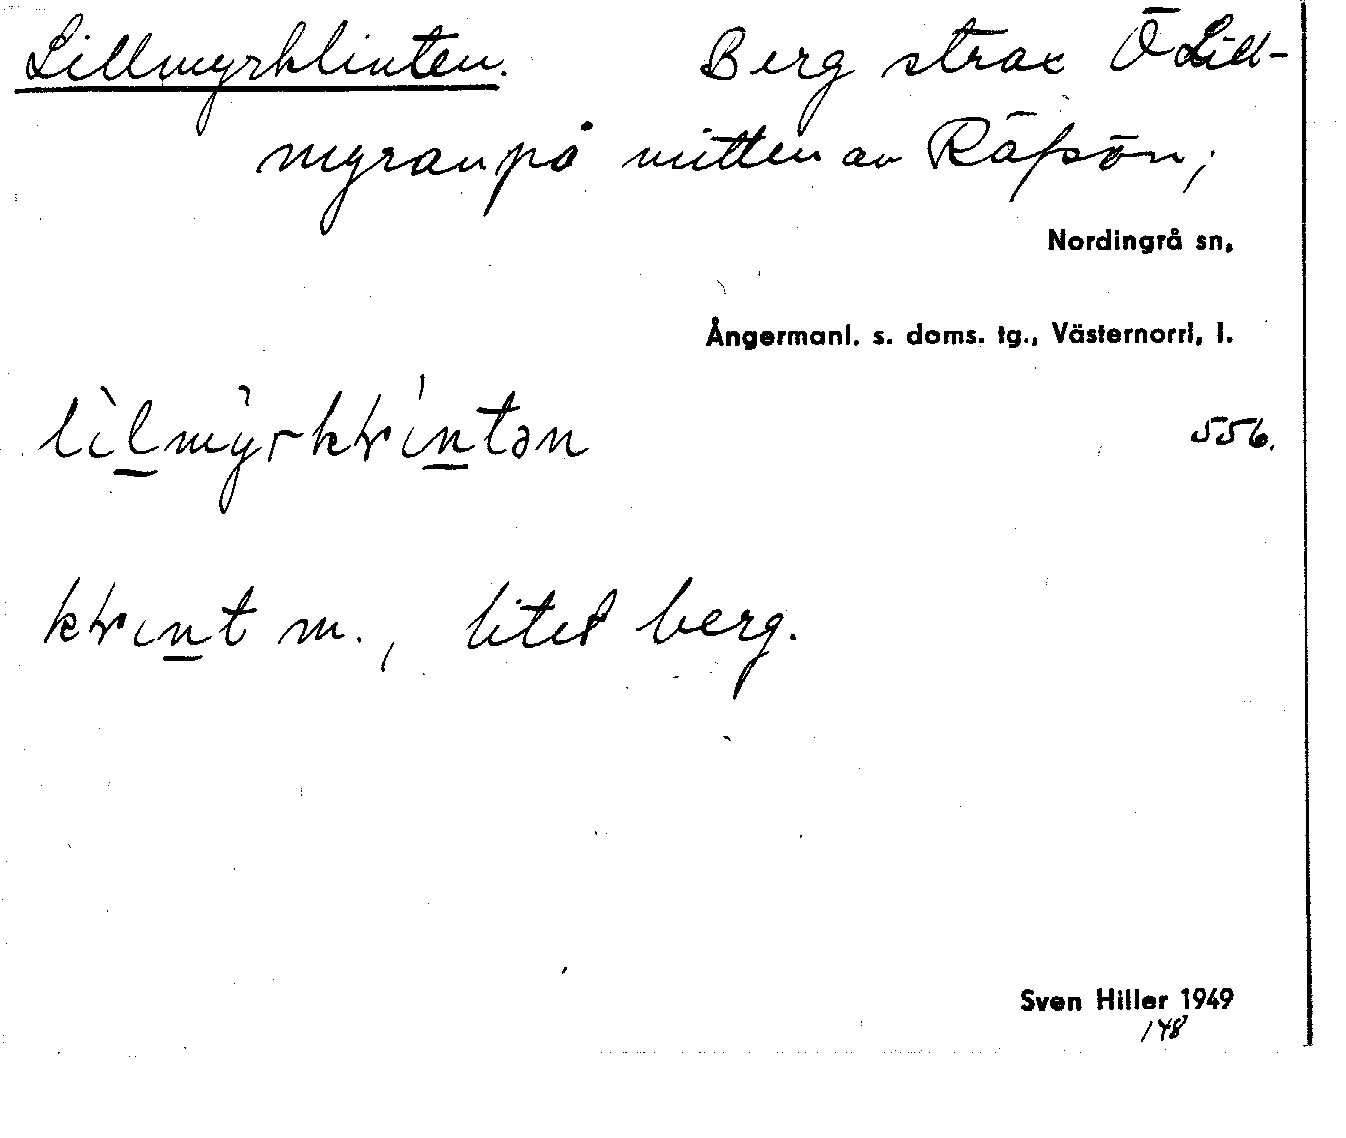 Lillmyrklinten. Berg strax Ö Lill-
myran på mitten av Räfsön,
Nordingrå sn,
Ångermanl. s. doms. tg., Västernorrl. l.
556.
klint m., litet berg.
Sven Hiller 1949
148